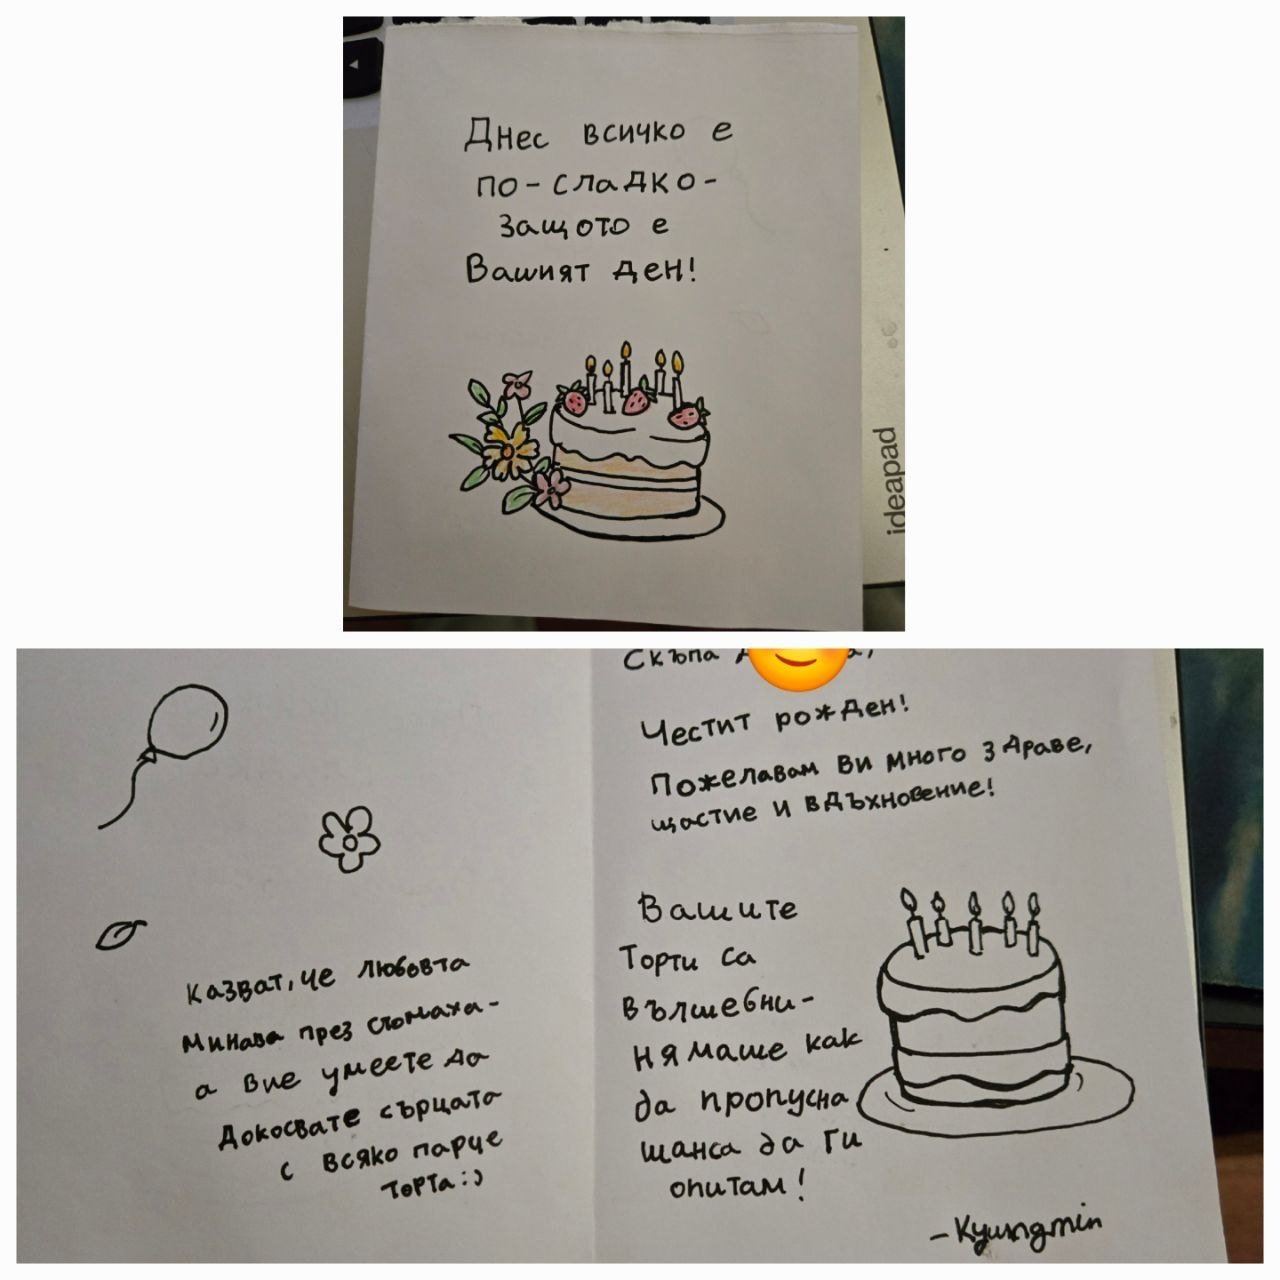 Днес всичко е
по-сладко-
защото е
Вашият ден!
ideapad
Казват, че любовта
минава през стомаха-
а Вие умеете да
докосвате сърцата
с всяко парче
торта:)
Скъпа
Честит рожден!
Пожелавам Ви много здраве,
щастие и вдъхновение!
Вашите
торти са
вълшебни-
нямаше как
да пропусна
шанса да ги
опитам!
-Kyungmin